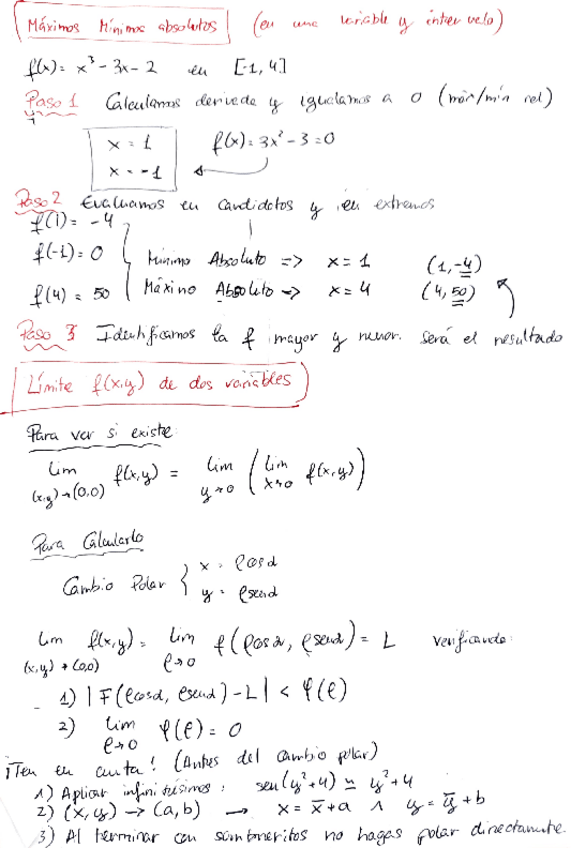 Máximos Mínimos absolutos (en una variable y intervalo)
f(x) = x³ - 3x - 2 en [-1, 4]
Paso 1 Calculamos derivada y igualamos a 0 (máx/mín rel)
x = 1 f(x) = 3x² - 3 = 0
x = -1
Paso 2 Evaluamos en candidatos y en extremos
f(1) = -4
f(-1) = 0 Mínimo Absoluto => x = 1 (1, -4)
f(4) = 50 Máximo Absoluto => x = 4 (4, 50)
Paso 3 Identificamos la f mayor y menor. será el resultado
Límite f(x,y) de dos variables
Para ver si existe
lim (x,y)→(0,0) f(x,y) = lim y→0 ( lim x→0 f(x,y) )
Para Calcularlo
Cambio Polar { x = ρcosα
y = ρsenα
lim (x,y)→(0,0) f(x,y) = lim ρ→0 f(ρcosα, ρsenα) = L verificando:
1) |F(ρcosα, ρsenα) - L| < φ(ρ)
2) lim ρ→0 φ(ρ) = 0
¡Ten en cuta! (Antes del cambio polar)
1) Aplicar infinitésimos: sen(y²+4) ≃ y²+4
2) (x, y) → (a, b) → x = x̄ + a ∧ y = ȳ + b
3) Al terminar con hagas polar directamente.